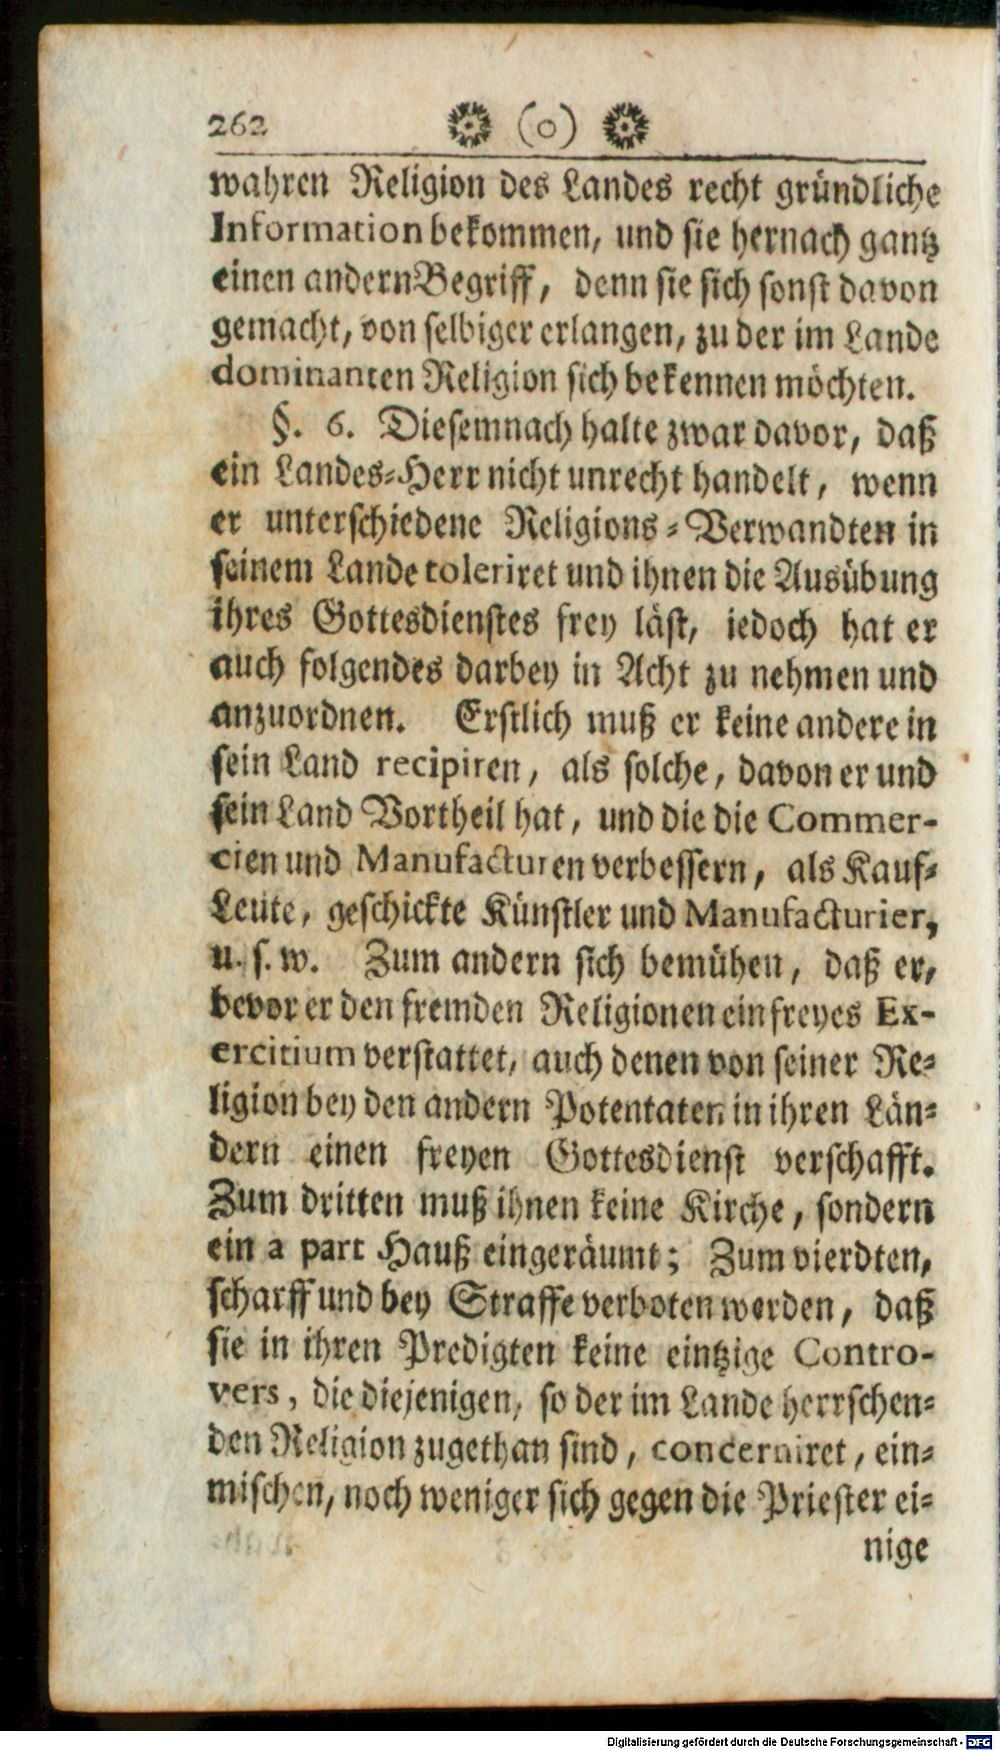 262 (o)
wahren Religion des Landes recht gründliche
Information bekommen, und sie hernach gantz
einen andern Begriff, denn sie sich sonst davon
gemacht, von selbiger erlangen, zu der im Lande
dominanten Religion sich bekennen möchten.
§. 6. Diesemnach halte zwar davor, daß
ein Landes-Herr nicht unrecht handelt, wenn
er unterschiedene Religions-Verwandten in
seinem Lande toleriret und ihnen die Ausübung
ihres Gottesdienstes frey läst, iedoch hat er
auch folgendes darbey in Acht zu nehmen und
anzuordnen. Erstlich muß er keine andere in
sein Land recipiren, als solche, davon er und
sein Land Vortheil hat, und die die Commer-
cien und Manufacturen verbessern, als Kauf-
Leute, geschickte Künstler und Manufacturier,
u. s. w. Zum andern sich bemühen, daß er,
bevor er den fremden Religionen ein freyes Ex-
ercitium verstattet, auch denen von seiner Re-
ligion bey den andern Potentaten in ihren Län-
dern einen freyen Gottesdienst verschafft.
Zum dritten muß ihnen keine Kirche, sondern
ein a part Hauß eingeräumt; Zum vierdten,
scharff und bey Straffe verboten werden, daß
sie in ihren Predigten keine eintzige Contro-
vers, die diejenigen, so der im Lande herrschen-
den Religion zugethan sind, concerniret, ein-
mischen, noch weniger sich gegen die Priester ei-
nige
Digitalisierung gefördert durch die Deutsche Forschungsgemeinschaft - DFG